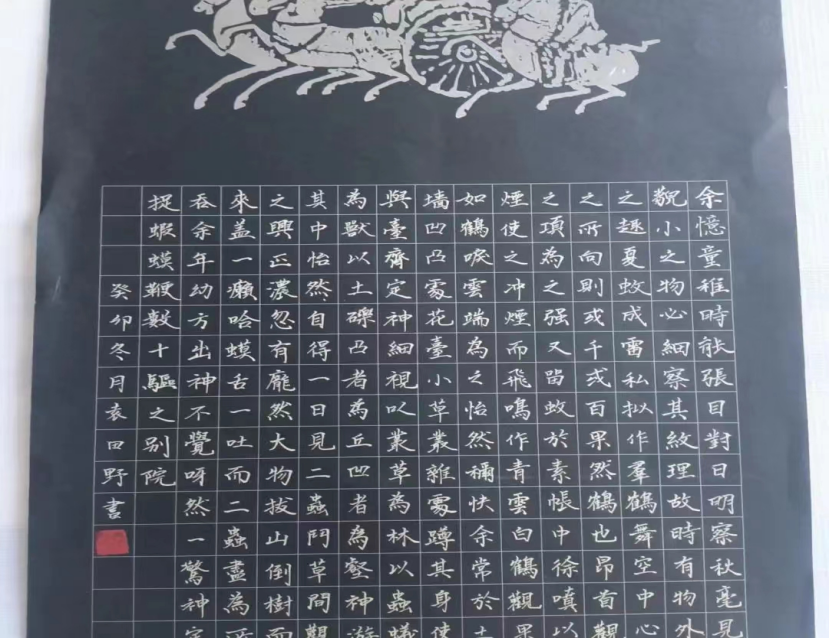 余憶童稚時能張目對日明察秋毫見
藐小之物必細察其紋理故時有物外
之趣夏蚊成雷私拟作羣鶴舞空中心
之所向則或千或百果然鶴也昂首觀
之項為之强又留蚊於素帳中徐噴以
煙使之冲煙而飛鳴作青雲白鶴觀果
如鶴唳雲端為之怡然稱快余常於土
墙凹凸處花臺小草叢雜處蹲其身使
與臺齊定神細視以叢草為林以蟲蟻
為獸以土礫凸者為丘凹者為壑神游
其中怡然自得一日見二蟲鬥草間觀
之興正濃忽有龐然大物拔山倒樹而
來蓋一癩哈蟆舌一吐而二蟲盡為所
吞余年幼方出神不覺呀然一驚神定
捉蝦蟆鞭數十驅之别院
癸卯冬月袁田野書